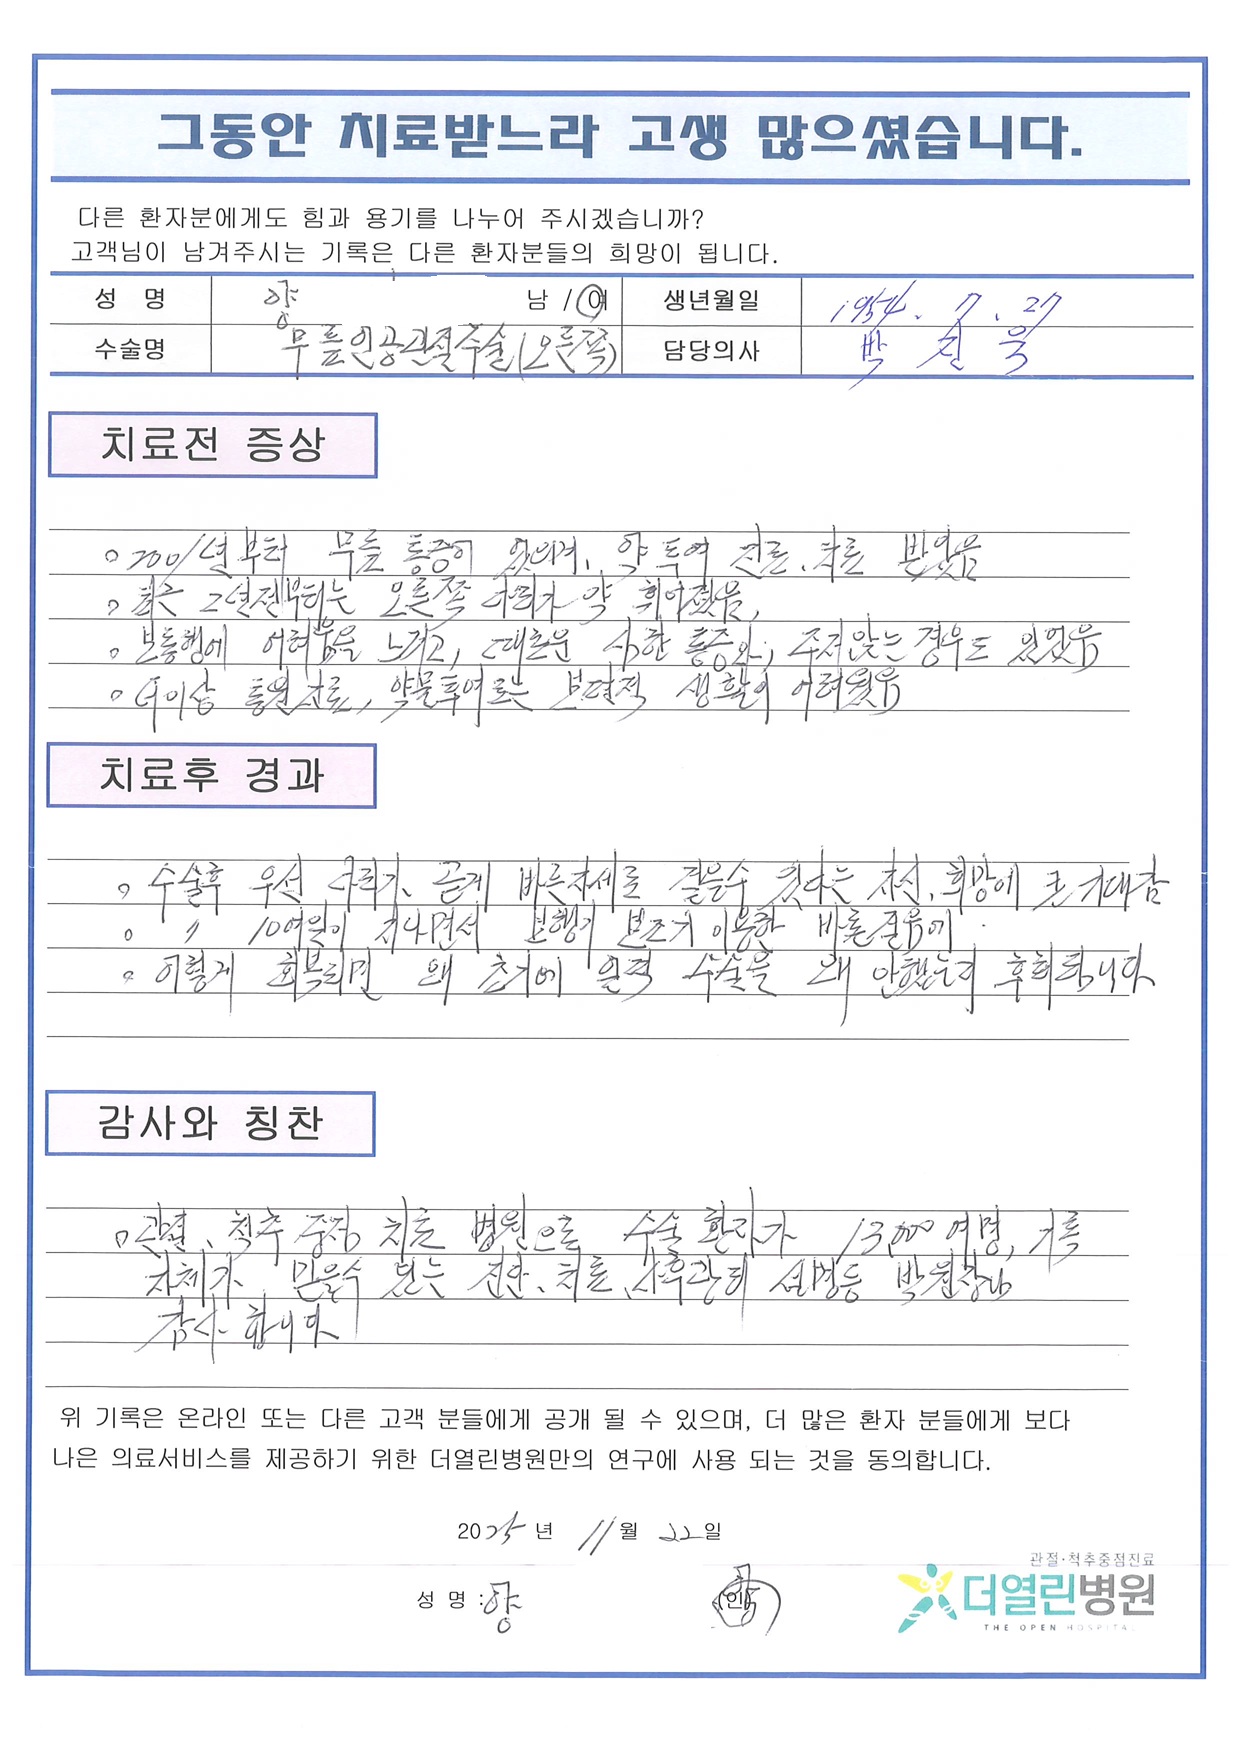 그동안 치료받느라 고생 많으셨습니다.
다른 환자분에게도 힘과 용기를 나누어 주시겠습니까?
고객님이 남겨주시는 기록은 다른 환자분들의 희망이 됩니다.
성 명 양 남 / 여 생년월일 1954. 7. 27
수술명 무릎인공관절수술(오른쪽) 담당의사 박진욱
치료전 증상
◦ 2001년부터 무릎 통증이 있으며, 약 투여 진료, 치료 받았음
◦ 최근 2년전부터는 오른쪽 다리가 약 휘어졌음,
◦ 보통행에 어려움을 느끼고, 때론은 심한 통증와, 주저앉는 경우도 있었음
◦ 더이상 통원진료, 약물투여로는 보편적 생활이 어려웠음
치료후 경과
◦ 수술후 우선 다리가 곧게 바른자세로 걸을수 있다는 자신, 희망에 큰 기대감
◦ 〃 10여일이 지나면서 보행기 보조기 이용한 바른걸음에
◦ 이렇게 회복되면 왜 초기에 일찍 수술을 왜 안했는지 후회됩니다
감사와 칭찬
◦ 관절, 척추 중점 치료 병원으로 수술 환자가 13,000여명, 기록
자체가 믿을수 있는 진단, 치료, 사후관리 설명등 박원장님
감사 합니다
위 기록은 온라인 또는 다른 고객 분들에게 공개 될 수 있으며, 더 많은 환자 분들에게 보다
나은 의료서비스를 제공하기 위한 더열린병원만의 연구에 사용 되는 것을 동의합니다.
2025년 11월 22일
성 명 : 양 (인)
관절·척추중점진료
더열린병원
THE OPEN HOSPITAL